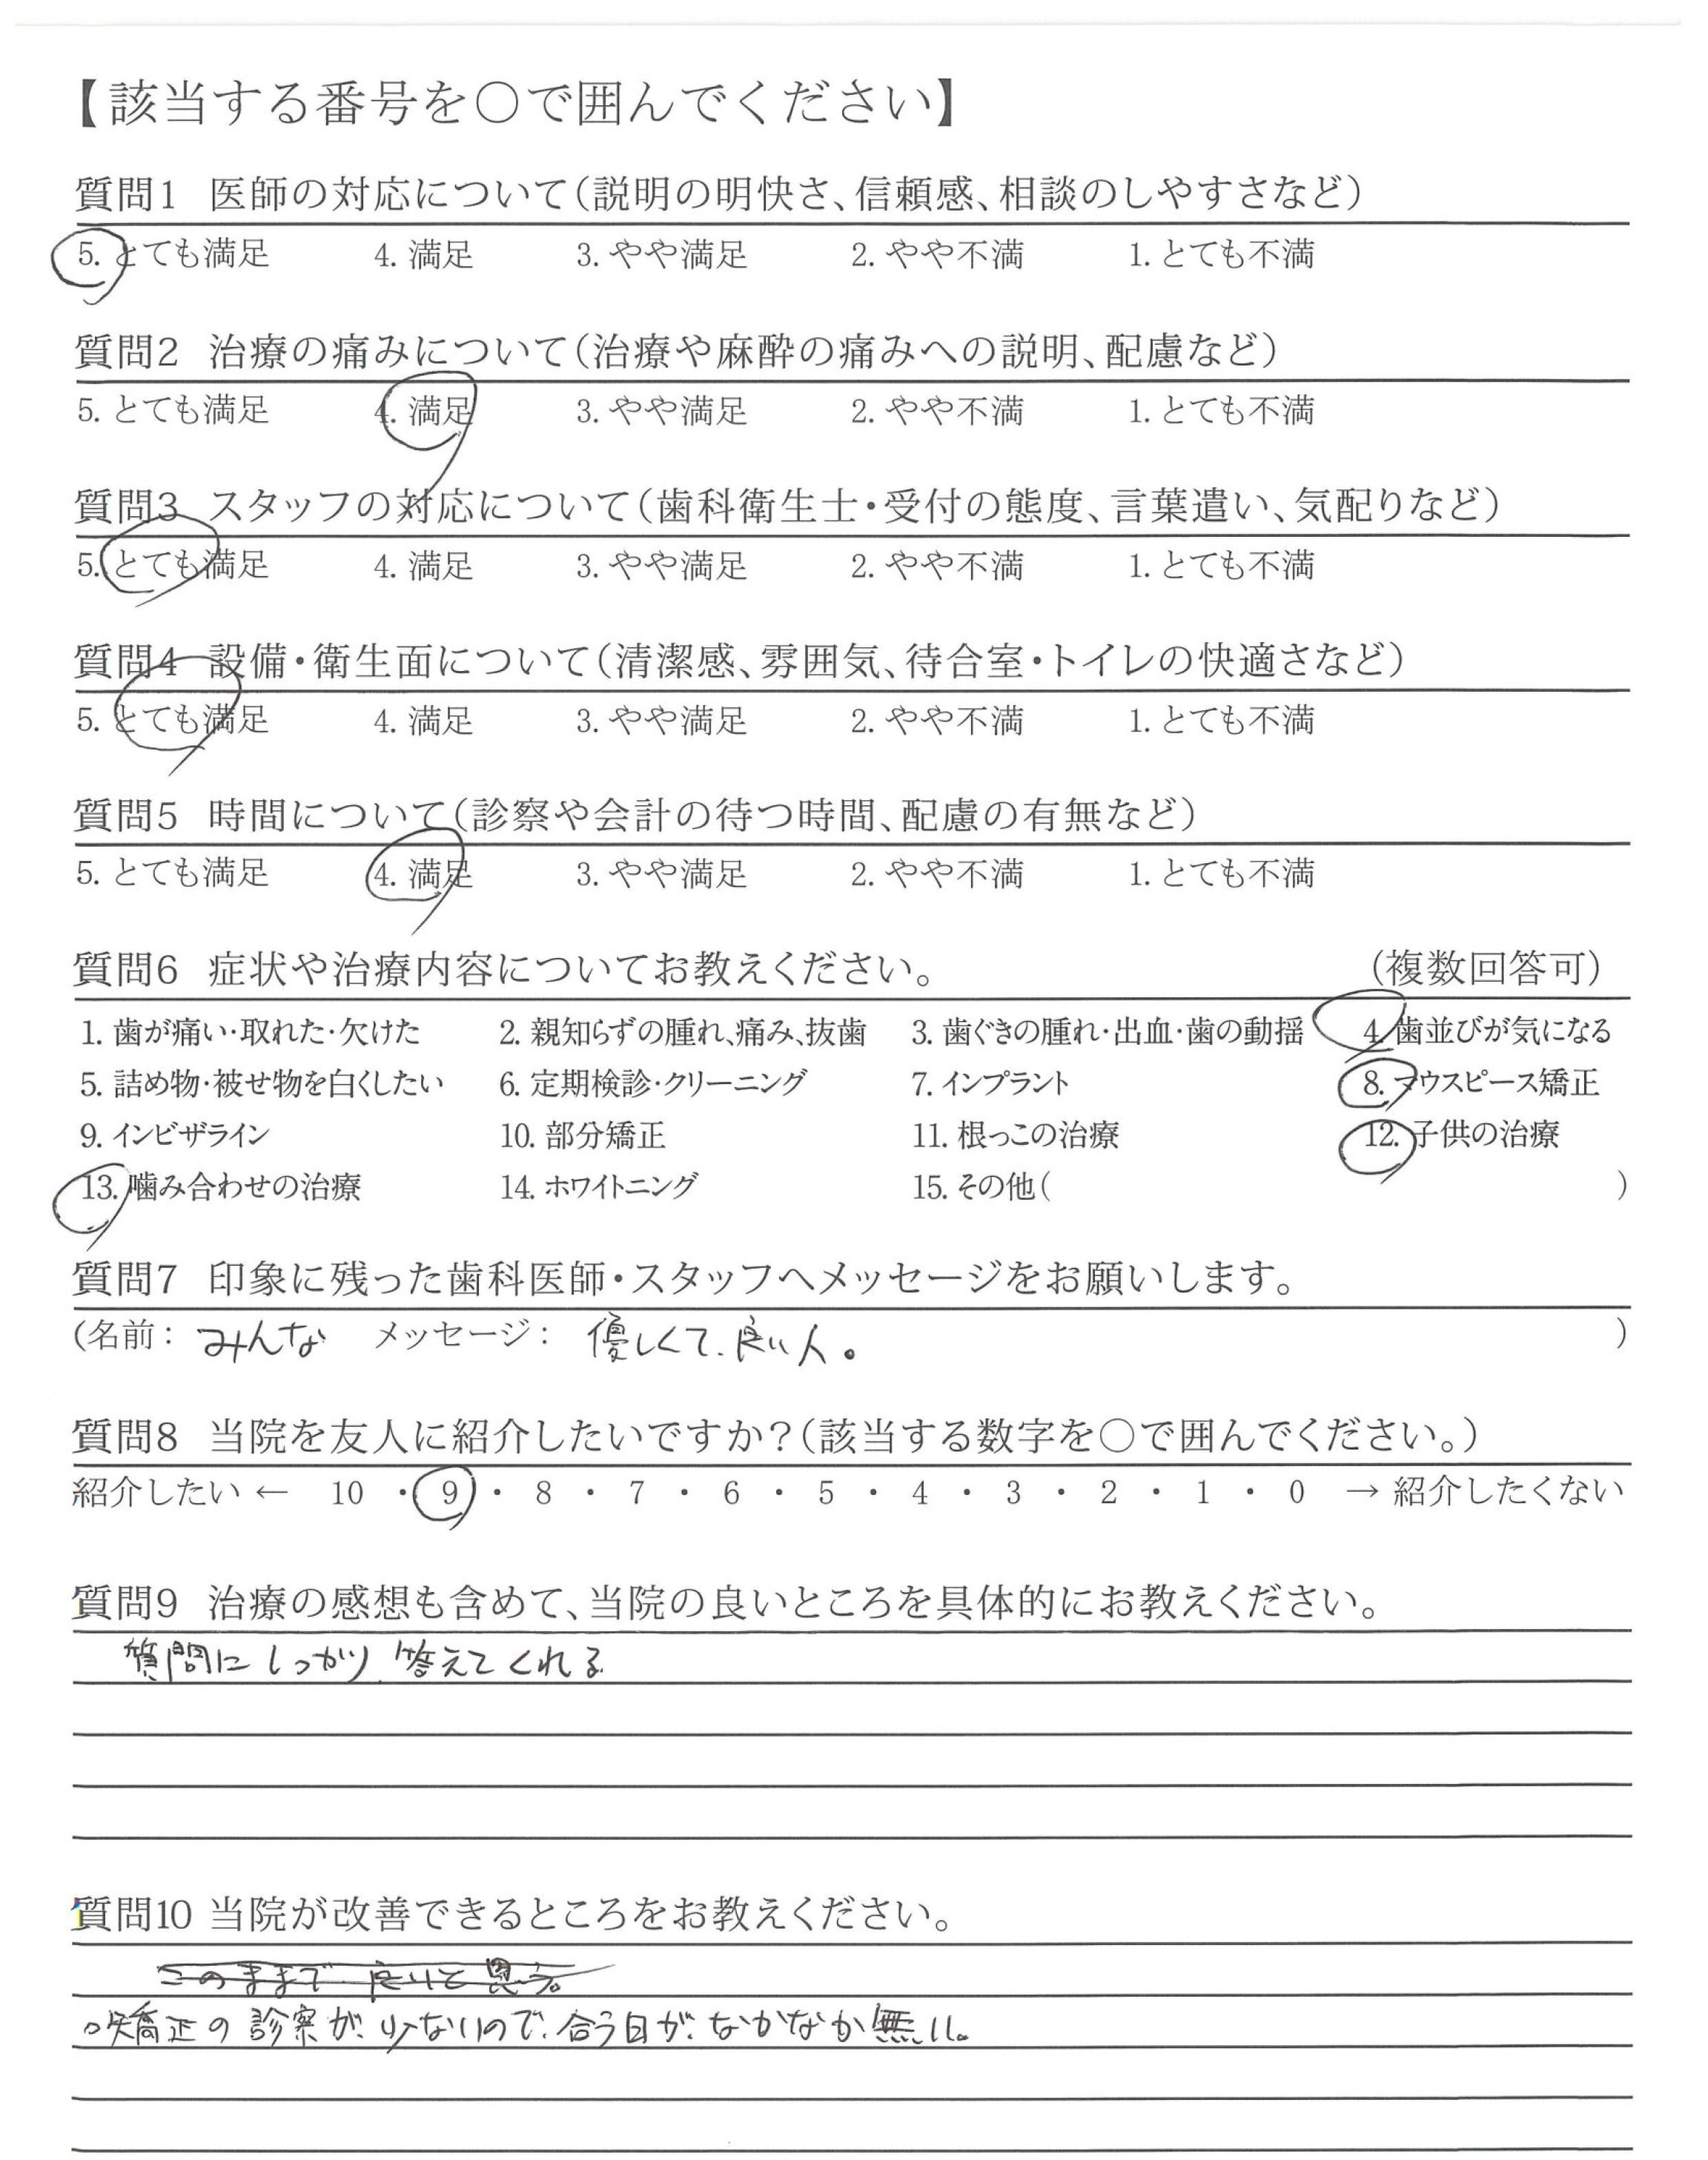 【該当する番号を〇で囲んでください】
質問1 医師の対応について(説明の明快さ、信頼感、相談のしやすさなど)
5. とても満足 4. 満足 3. やや満足 2. やや不満 1. とても不満
質問2 治療の痛みについて(治療や麻酔の痛みへの説明、配慮など)
5. とても満足 4. 満足 3. やや満足 2. やや不満 1. とても不満
質問3 スタッフの対応について(歯科衛生士・受付の態度、言葉遣い、気配りなど)
5. とても満足 4. 満足 3. やや満足 2. やや不満 1. とても不満
質問4 設備・衛生面について(清潔感、雰囲気、待合室・トイレの快適さなど)
5. とても満足 4. 満足 3. やや満足 2. やや不満 1. とても不満
質問5 時間について(診察や会計の待つ時間、配慮の有無など)
5. とても満足 4. 満足 3. やや満足 2. やや不満 1. とても不満
質問6 症状や治療内容についてお教えください。 (複数回答可)
1. 歯が痛い・取れた・欠けた 2. 親知らずの腫れ、痛み、抜歯 3. 歯ぐきの腫れ・出血・歯の動揺 4. 歯並びが気になる
5. 詰め物・被せ物を白くしたい 6. 定期検診・クリーニング 7. インプラント 8. マウスピース矯正
9. インビザライン 10. 部分矯正 11. 根っこの治療 12. 子供の治療
13. 噛み合わせの治療 14. ホワイトニング 15. その他( )
質問7 印象に残った歯科医師・スタッフへメッセージをお願いします。
(名前: みんな メッセージ: 優しくて、良い人。 )
質問8 当院を友人に紹介したいですか?(該当する数字を〇で囲んでください。)
紹介したい ← 10 ・ 9 ・ 8 ・ 7 ・ 6 ・ 5 ・ 4 ・ 3 ・ 2 ・ 1 ・ 0 → 紹介したくない
質問9 治療の感想も含めて、当院の良いところを具体的にお教えください。
質問にしっかり、答えてくれる
質問10 当院が改善できるところをお教えください。
このままで良いと思う。
○矯正の診察が、少ないので、合う日が、なかなか無い。